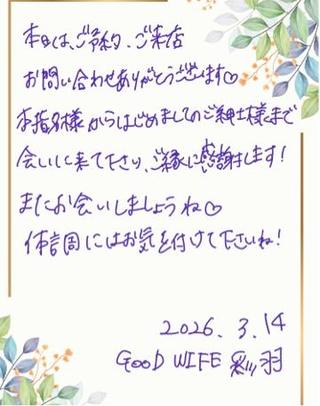 本日は、ご予約、ご来店
お問い合わせありがとうございます♡
本指名様からはじめましてのご紳士様まで
会いに来て下さり、ご縁に感謝します！
またお会いしましょうね♡
体調にはお気を付けて下さいね！
2026.3.14
GOOD WIFE 彩羽